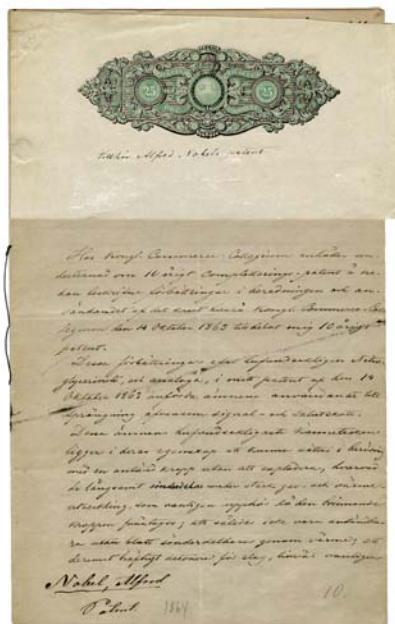 25 25
tillhör Alfred Nobels patent
Hos Kongl. Commerce-Collegium anhåller un-
dertecknad om 10 årigt Completterings-patent å ne-
dan beskrifne förbättringar i beredningen och an-
vändandet af det krut hvarå Kongl. Commerce Col-
legium den 14 Oktober 1863 tilldelat mig 10 årigt
patent.
Dessa förbättringar afse hufvudsakligen Nitro-
glycerinets, och analoga, i mitt patent af den 14
Oktober 1863 anförda ämnens användande till
sprängning äfvensom signal- och salutskott.
Dessa ämnens hufvudsakligaste
ligger i deras egenskap att kunna sättas i beröring
med en antänd kropp utan att explodera, hvarvid
de långsamt sönderdelas under stark gas- och värme-
utveckling, som vanligen upphör då den brinnande
kroppen fråntages; att således icke vara antändba-
ra utan blott sönderdelbara genom värme; att
deremot häftigt detonera för slag, hvarvid vanligen
Nobel, Alfred
Patent 1864
10.